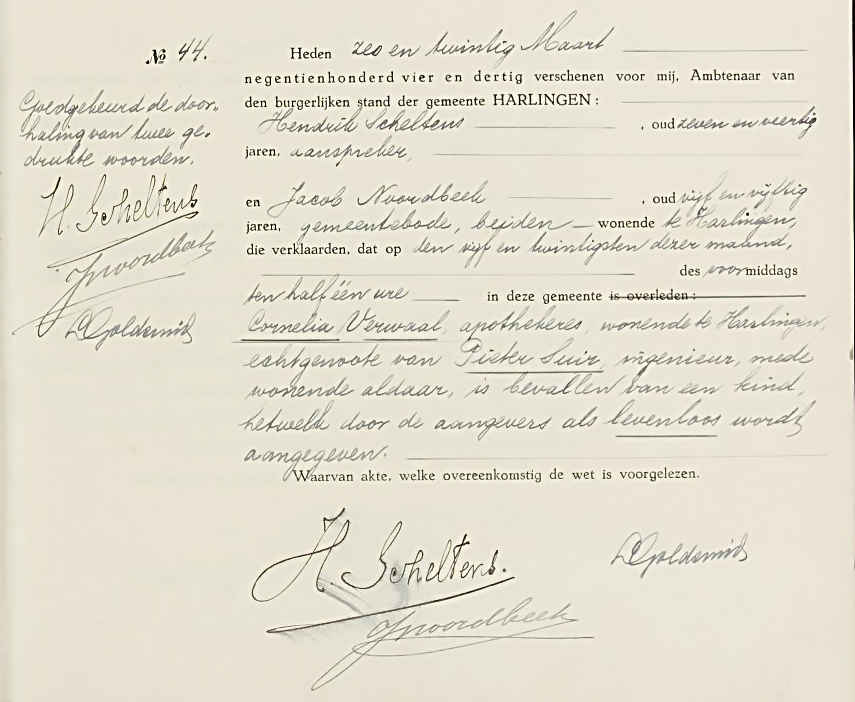 № 44.
Heden zes en twintig Maart
negentienhonderd vier en dertig verschenen voor mij, Ambtenaar van
den burgerlijken stand der gemeente HARLINGEN:
Hendrik Scheltens, oud zeven en veertig
jaren, aanspreker,
en Jacob Noordbeek, oud vijf en vijftig
jaren, gemeentebode, beiden wonende te Harlingen,
die verklaarden, dat op den vijf en twintigsten dezer maand,
des voormiddags
ten half één ure in deze gemeente is overleden:
Cornelia Verwaal, apothekeres, wonende te Harlingen,
echtgenoote van Pieter Suir, ingenieur, mede
wonende aldaar, is bevallen van een kind,
hetwelk door de aangevers als levenloos wordt
aangegeven.
Waarvan akte, welke overeenkomstig de wet is voorgelezen.
Goedgekeurd de door-
haling van twee ge-
drukte woorden.
H. Scheltens
JNoordbeek
LGoldsmid
H. Scheltens.
LGoldsmid
JNoordbeek